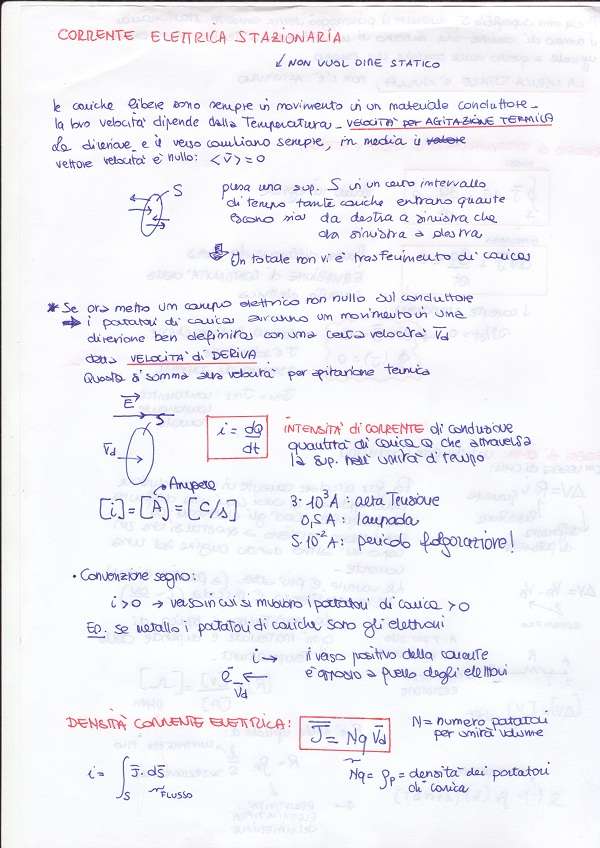 CORRENTE ELETTRICA STAZIONARIA
↙ NON VUOL DIRE STATICO
le cariche libere sono sempre in movimento in un materiale conduttore_
la loro velocità dipende dalla Temperatura_ VELOCITÀ per AGITAZIONE TERMICA
La direzione e il verso cambiano sempre, in media il valore
vettore velocità è nullo: <v̄> = 0
S
presa una sup. S in un certo intervallo
di tempo tante cariche entrano quante
escono sia da destra a sinistra che
da sinistra a destra
⇒ In totale non vi è trasferimento di carica
* Se ora metto un campo elettrico non nullo sul conduttore
⇒ i portatori di carica avranno un movimento in una
direzione ben definita con una certa velocità v̄d
detta VELOCITÀ di DERIVA
Questa si somma alla velocità per agitazione termica
E̅
S
v̄d
i = dQ/dt
INTENSITÀ di CORRENTE di conduzione
quantità di carica Q che attraversa
la sup. nell'unità di tempo
Ampere
[i] = [A] = [C/s]
3·10³ A : alta Tensione
0,5 A : lampada
5·10⁻² A : pericolo folgorazione!
• Convenzione segno:
i > 0 → verso in cui si muovono i portatori di carica > 0
ES. se metallo i portatori di cariche sono gli elettroni
i → il verso positivo della corrente
è opposto a quello degli elettroni
e⁻ ←
v̄d
DENSITÀ CORRENTE ELETTRICA: J̅ = Nq v̄d
N = numero portatori
per unità volume
i = ∫S J̅ · ds̅
FLUSSO
Nq = ρp = densità dei portatori
di carica